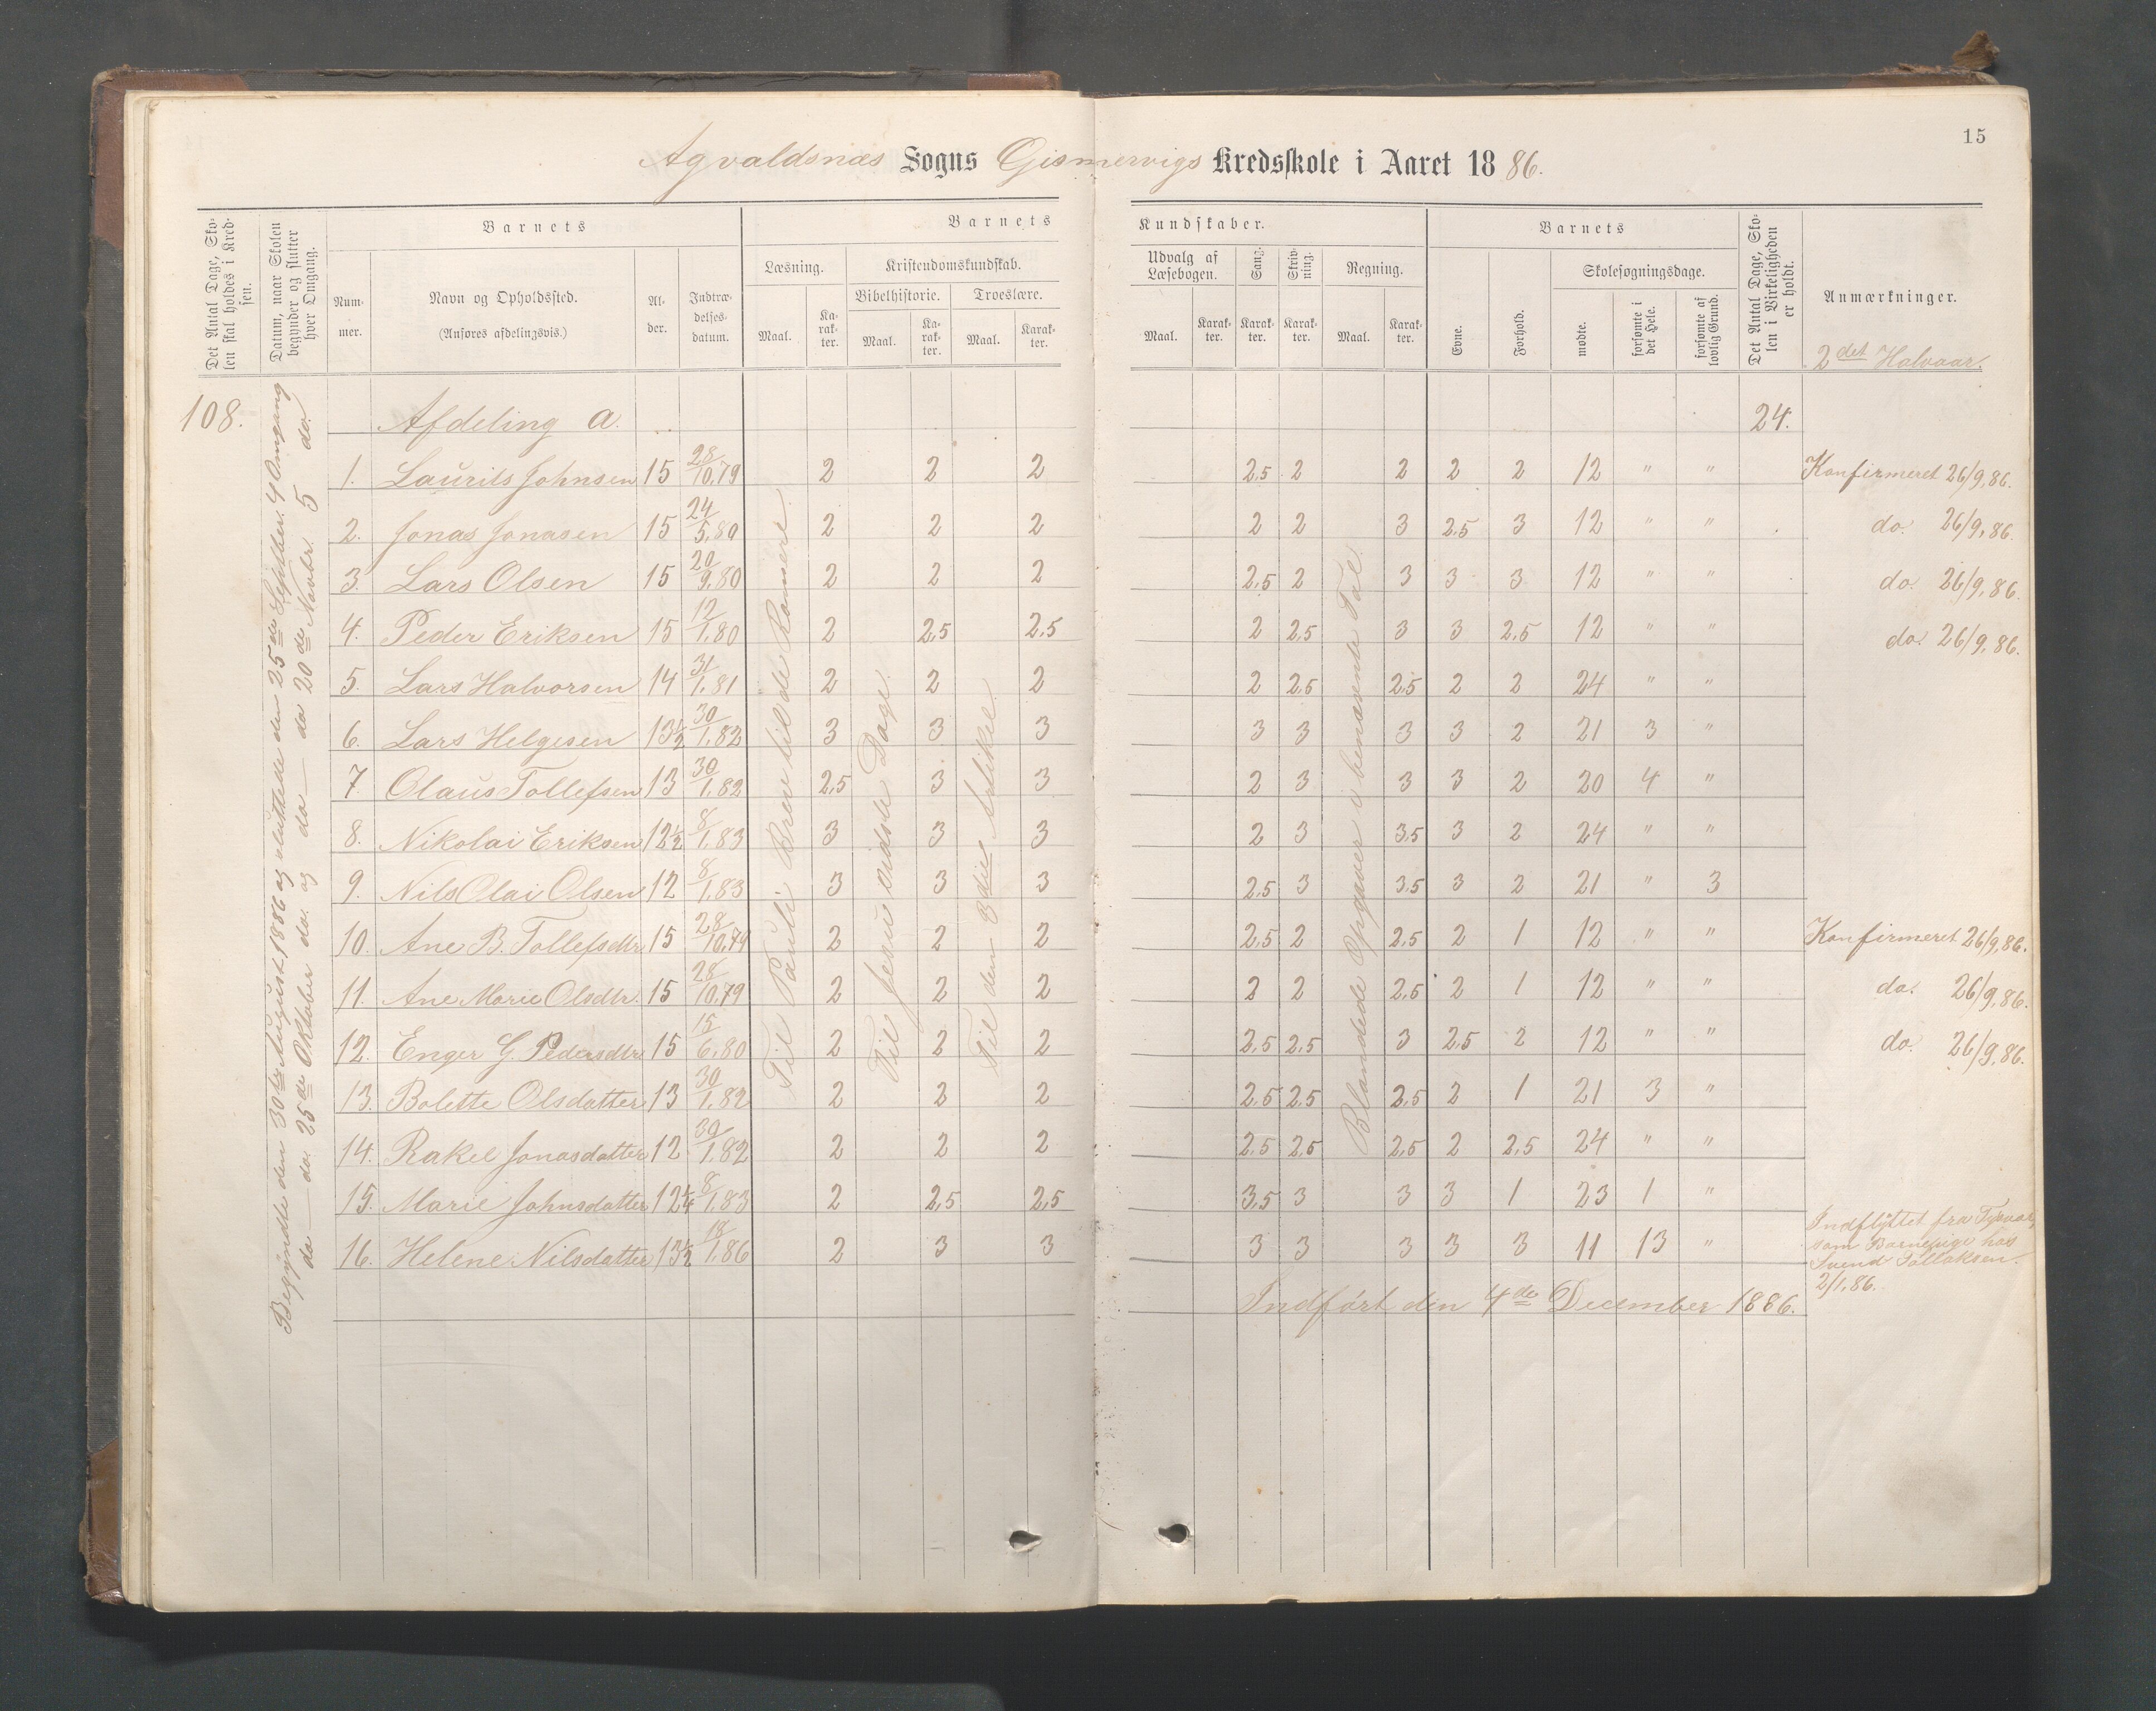 15
Agvaldsnæs Sogns Gismervigs Kredsskole i Aaret 1886.
Det Antal Dage, Skolen skal holdes i Kredsen.
Datum, naar Skolen begynder og slutter hver Omgang.
Barnets
Nummer.
Navn og Opholdssted.
(Anføres afdelingsvis.)
Alder.
Indtrædelsesdatum.
Barnets Kundskaber.
Læsning.
Maal.
Karakter.
Kristendomskundskab.
Bibelhistorie.
Maal.
Karakter.
Troeslære.
Maal.
Karakter.
Udvalg af Læsebogen.
Maal.
Karakter.
Sang.
Karakter.
Skrivning.
Karakter.
Regning.
Maal.
Karakter.
Barnets
Evne.
Forhold.
Skolesøgningsdage.
mødte.
forsømte i det Hele.
forsømte af lovlig Grund.
Det Antal Dage, Skolen i Virkeligheden er holdt.
Anmærkninger.
2det Halvaar.
108.
Begyndte den 30te August 1886 og sluttede den 25de Septbr. 4 Omgang
do — do. 25de Oktober do. og do — do 20de Novbr. 5 do.
Afdeling a. 24.
1. Laurits Johnsen 15 28/10.79 2 2 2 2,5 2 2 2 2 12 " " Konfirmeret 26/9,86.
2. Jonas Jonasen 15 24/5.80 2 2 2 2 2 3 2,5 3 12 " " do. 26/9,86.
3. Lars Olsen 15 20/9.80 2 2 2 2,5 2 3 3 3 12 " " do. 26/9,86.
4. Peder Eriksen 15 12/1.80 2 2,5 2,5 2 2,5 3 3 2,5 12 " " do. 26/9,86.
5. Lars Halvorsen 14 31/1.81 2 2 2 2 2,5 2,5 2 2 24 " "
6. Lars Helgesen 13½ 30/1.82 3 3 3 3 3 3 3 2 21 3 "
7. Olaus Tollefsen 13 30/1.82 2,5 3 3 2 3 3 3 2 20 4 "
8. Nikolai Eriksen 12½ 8/1.83 3 3 3 2 3 3,5 3 2 24 " "
9. Nils Olai Olsen 12 8/1.83 3 3 3 2,5 3 3,5 3 2 21 " 3
10. Ane B. Tollefsdtr 15 28/10.79 2 2 2 2,5 2 2,5 2 1 12 " " Konfirmeret 26/9,86.
11. Ane Marie Olsdtr. 15 28/10.79 2 2 2 2 2 2,5 2 1 12 " " do. 26/9,86.
12. Enger G. Pedersdtr 15 15/6.80 2 2 2 2,5 2,5 3 2,5 2 12 " " do. 26/9,86.
13. Bolette Olsdatter 13 30/1.82 2 2 2 2,5 2,5 2,5 2 1 21 3 "
14. Rakel Jonasdatter 12 30/1.82 2 2 2 2,5 2,5 2,5 2 2,5 24 " "
15. Marie Johnsdatter 12¼ 8/1.83 2 2,5 2,5 3,5 3 3 3 1 23 1 "
16. Helene Nilsdatter 13½ 18/1.86 2 3 3 3 3 3 3 3 11 13 "
Indflyttet fra Tysvær
som Barnepige hos
Svend Tollaksen.
2/1.86.
Til Pauli Brev til de Romere.
Til Jesu sidste Dage.
Til den 3die Artikel.
Blandede Opgaver i benævnte Tal.
Indført den 4de December 1886.